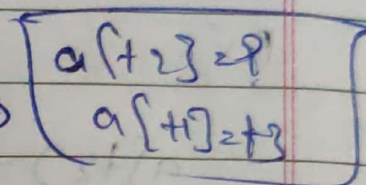 a[+2]=9'
a[+1]=+3